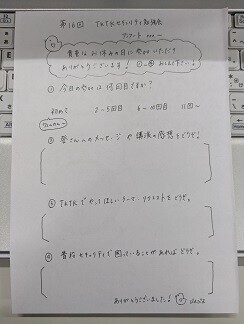 第16回 TKTKセキュリティ勉強会
アンケート
貴重なお休みの日に参加いただき
ありがとうございます!
① 今日の参加は何回目ですか?
初めて 2〜5回目 6〜10回目 11回〜
② 登さんへのメッセージや講演の感想をどうぞ!
③ TKTKでやってほしいテーマ・リクエストをどうぞ。
④ 普段セキュリティで困っていることがあればどうぞ。
ありがとうございました!